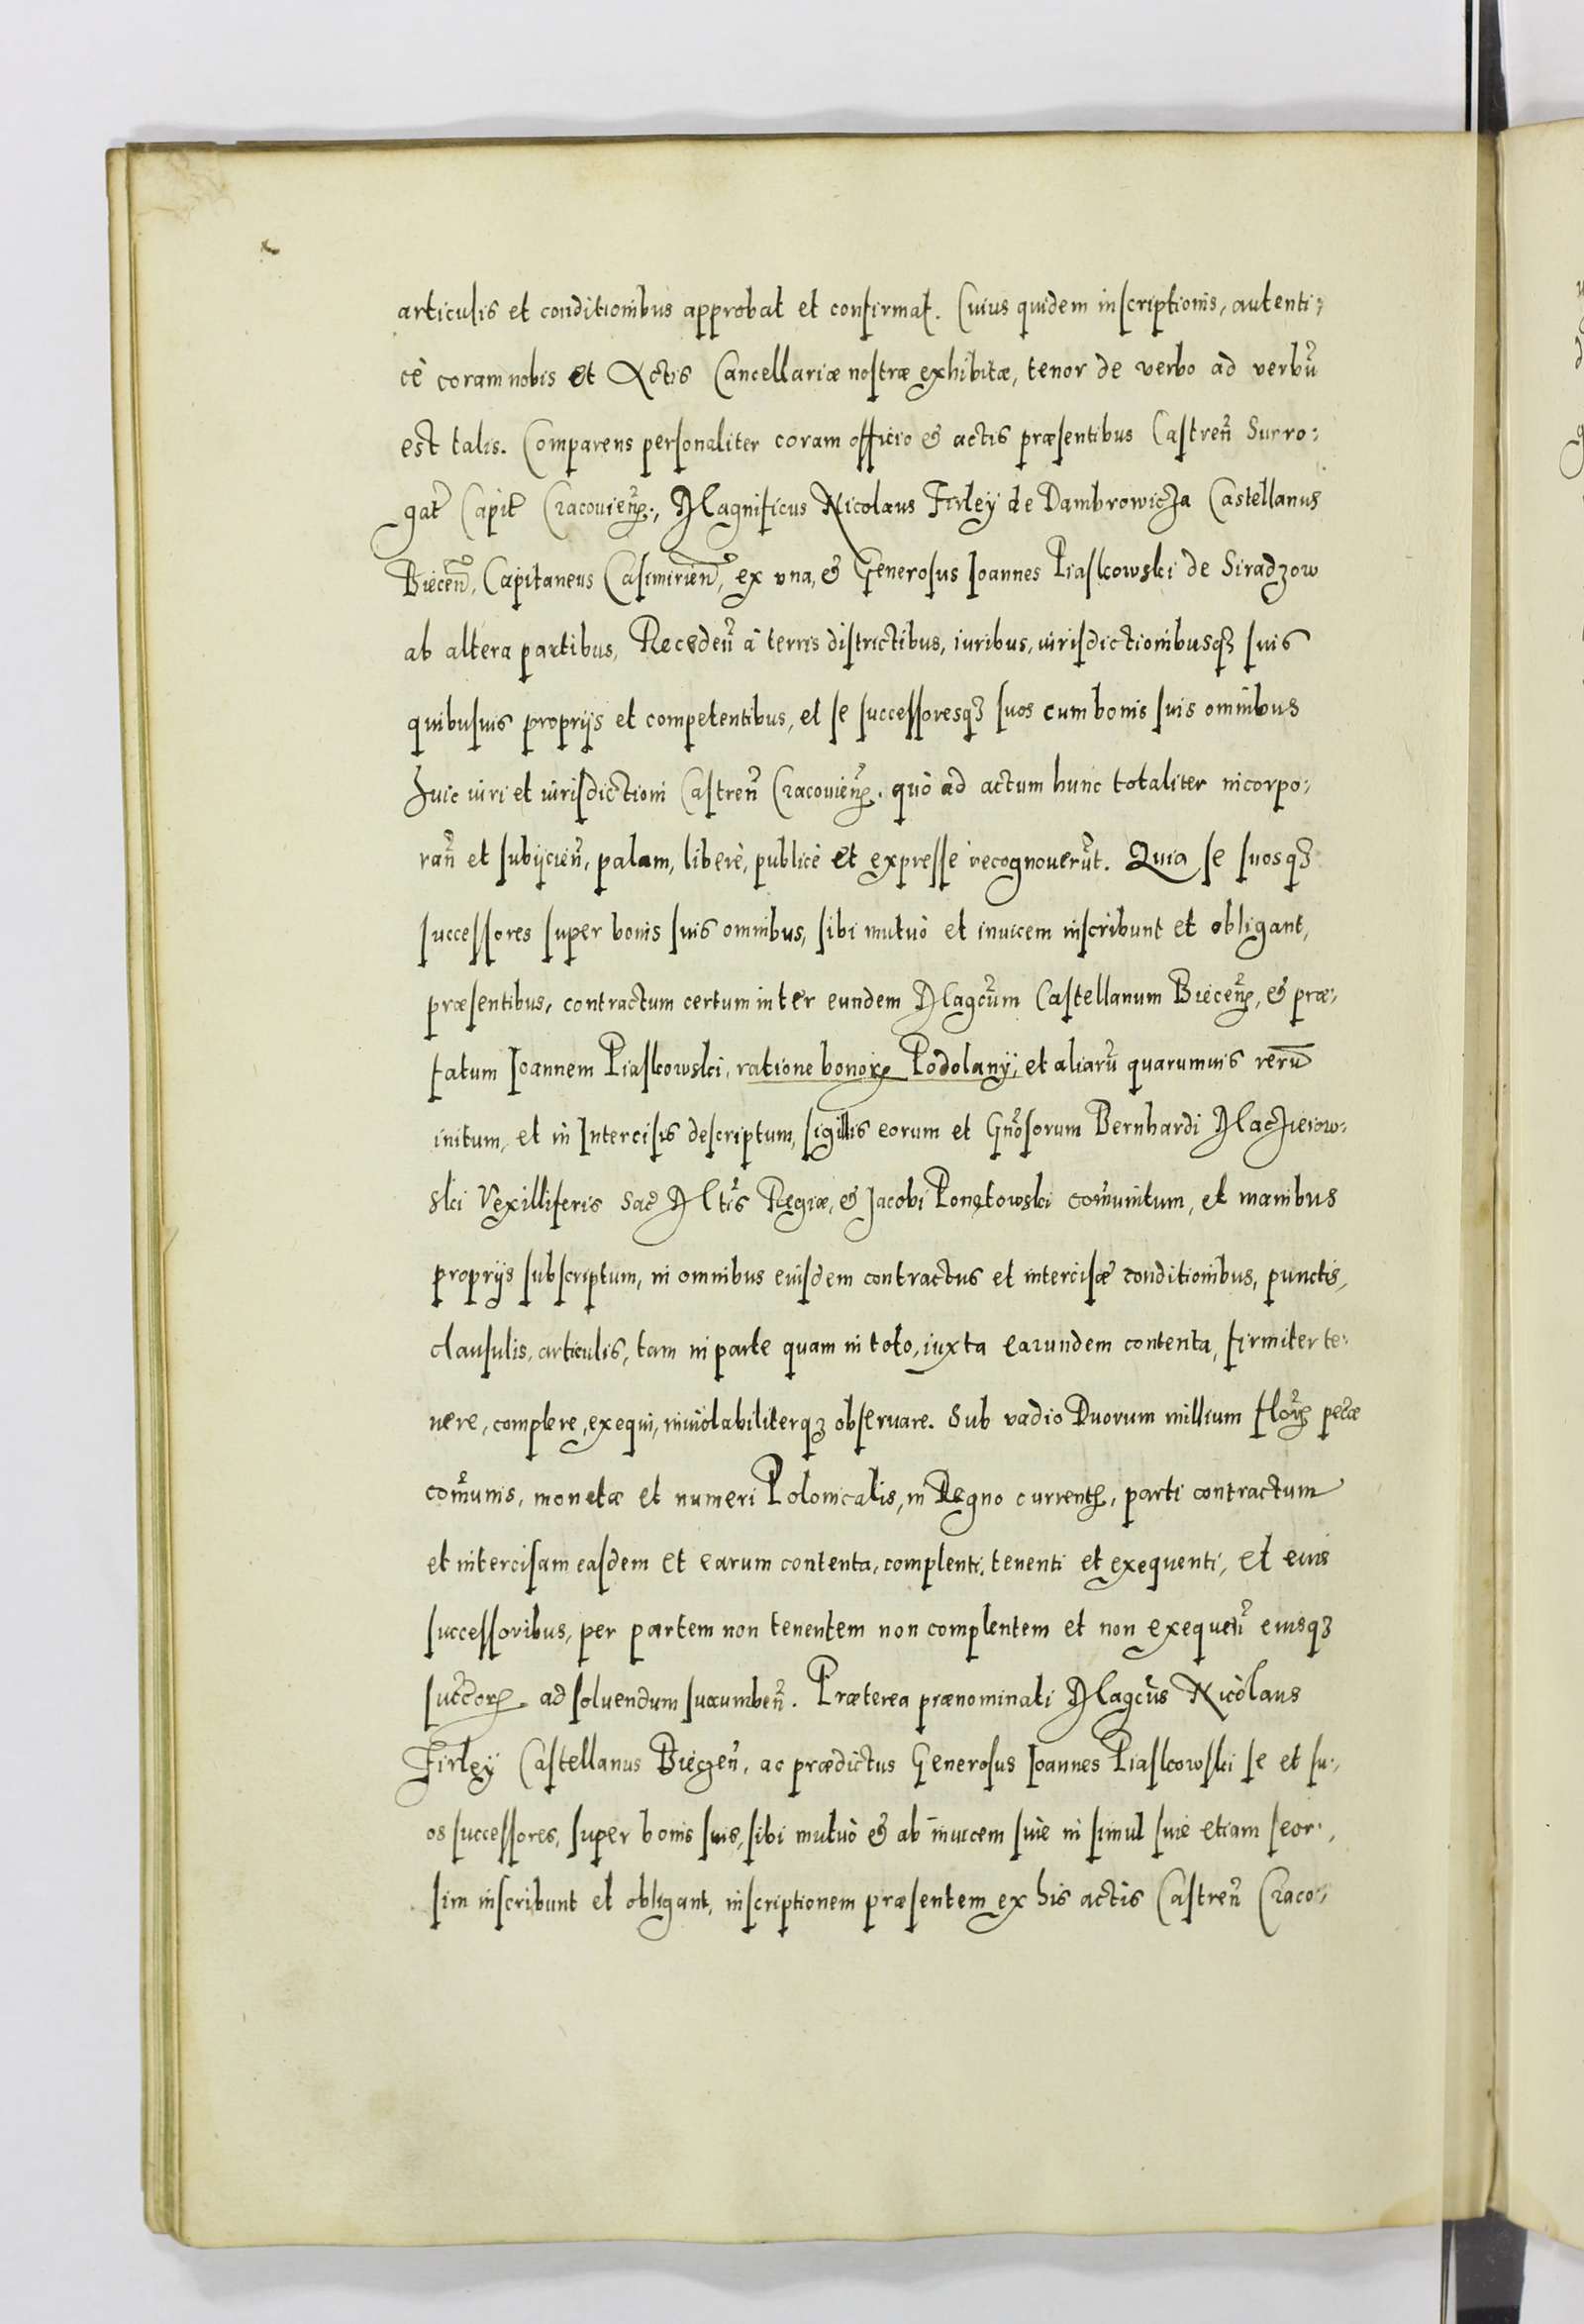 articulis et conditionibus approbat et confirmat. Cuius quidem inscriptionis, autenti:
cè coram nobis et Actis Cancellariæ nostræ exhibitæ, tenor de verbo ad verbũ
est talis. Comparens personaliter coram officio & actis præsentibus Castreñ Surro:
gat Capit Cracovieñ., Magnificus Nicolaus Firley de Dambrowicza Castellanus
Bieceñ, Capitaneus Casimirieñ, ex vna, & Generosus Ioannes Piaskowski de Siradzow
ab altera partibus, Recedeñ à terris districtibus, iuribus, iurisdictionibusqꝫ suis
quibusuis proprijs et competentibus, et se successoresqꝫ suos cum bonis suis omnibus
huic iuri et iurisdictioni Castreñ Cracovieñ. quò ad actum hunc totaliter incorpo:
rañ et subijcieñ, palam, liberè, publicè et expresse recognouerũt. Quia se suosqꝫ
successores super bonis suis omnibus, sibi mutuò et inuicem inscribunt et obligant,
præsentibus, contractum certum inter eundem Magcũm Castellanum Bieceñ, & præ:
fatum Ioannem Piaskowski, ratione bonoꝝ Podolany, et aliarũ quarumuis rerũ
initum, et in Intercisis descriptum, sigillis eorum et Gñosorum Bernhardi Maczieiow:
ski Vexilliferis Sac Mtis Regiæ, & Jacobi Ponętowski com̃unitum, et manibus
proprijs subscriptum, in omnibus eiusdem contractus et intercisæ conditionibus, punctis,
clausulis, articulis, tam in parte quam in toto, iuxta earundem contenta, firmiter te:
nere, complere, exequi, inuiolabiliterqꝫ obseruare. Sub vadio Duorum millium floꝝ pecæ
com̃unis, monetæ et numeri Polonicalis, in Regno currentꝭ, parti contractum
et intercisam easdem et earum contenta, complenti, tenenti et exequenti, et eius
successoribus, per partem non tenentem non complentem et non exequeñ eiusqꝫ
succoꝝ ad soluendum succumbeñ. Præterea prænominati Magcus Nicolaus
Firley Castellanus Biegeñ, ac prædictus Generosus Ioannes Piaskowski se et su:
os successores, super bonis suis, sibi mutuò & ab inuicem siue in simul siue etiam seor:
sim inscribunt et obligant, inscriptionem præsentem ex his actis Castreñ Craco: